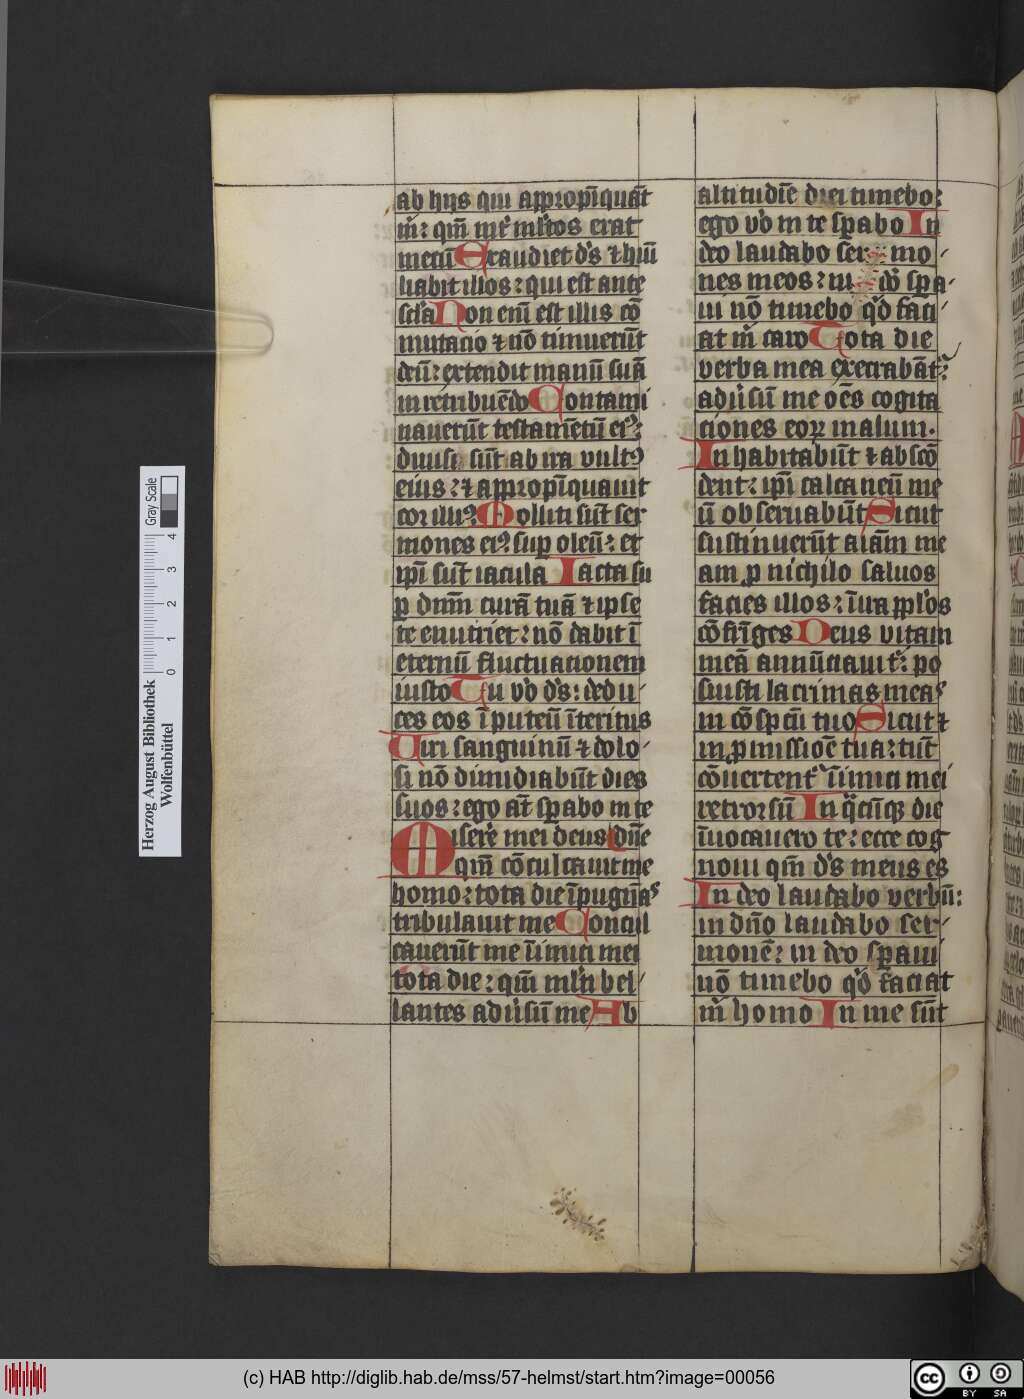 ab hijs qui appropīquāt
m̄: qm̄ int̾ ml̾tos erat
mecū Exaudiet dš ⁊ hūil
liabit illos: qui est ante
sc̄la Non enī est illis cō
mutacio ⁊ nō timuerūt
deū: extendit manū suā
in retribuēdo Contami
nauerūt testamētū eiꝰ:
diuisi sūt ab ira vultꝰ
eius: ⁊ appropīquauit
cor illiꝰ Molliti sūt ser
mones eiꝰ sup oleū: et
ipī sūt iacula Iacta su
ꝑ dnm̄ curā tuā ⁊ ipse
te enutriet: nō dabit ī
eternū fluctuacionem
iusto Tu v̾o dš: dedu/
ces eos ī puteū īteritus
Uiri sanguinū ⁊ dolo/
si nō dimidiabūt dies
suos: ego at̄ sꝑabo in te
Misere̾ mei deus dn̄e
qm̄ cōculcauit me
homo: tota die īpugnā̾s
tribulauit me Concul
cauerūt me īimici mei
tota die: qm̄ ml̾ti bel/
lantes adu̾sū me Ab
altitudīe diei timebo:
ego v̾o in te sꝑabo In
deo laudabo ser mo/
nes meos: in dō sꝑa/
ui nō timebo qd̾ faci/
at m̄ caro Tota die
verba mea execrabāt̾:
adu̾sū me oēs cogita
ciones eoꝝ in malum.
Inhabitabūt ⁊ abscō
dent: ipī calcaneū me
ū obseruabūt Sicut
sustinuerūt aīam me
am ꝓ nichilo saluos
facies illos: ī ira ppl̾os
cōfrīges Deus vitam
meā annūciaui t̾: po
suisti lacrimas meas
in cōspcū tuo Sicut ⁊
in ꝓmissiōe tua: tūc
cōuertent̾ īimici mei
retrorsū In q̄cūqꝫ die
īuocauero te: ecce cog
noui qm̄ dš meus es
In deo laudabo verbū:
in dn̄o laudabo ser/
monē: in deo sꝑaui
nō timebo qd̾ faciat
m̄ homo In me sūt
Gray Scale
4
3
2
1
0
Herzog August Bibliothek
Wolfenbüttel
(c) HAB http://diglib.hab.de/mss/57-helmst/start.htm?image=00056
cc
BY SA